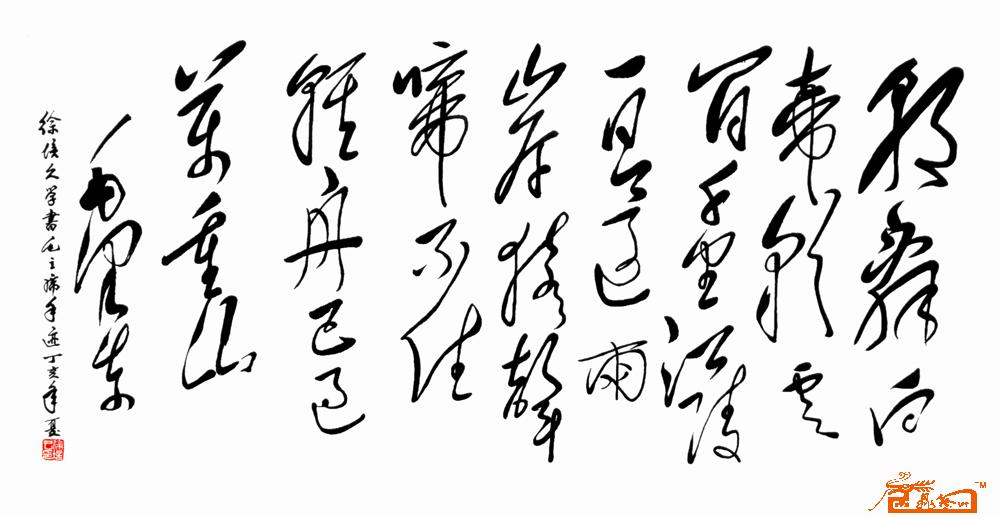 朝辞白
帝彩云
间千里江陵
一日还两
岸猿声
啼不住
轻舟已过
万重山
毛泽东
徐洪久学书毛主席手迹丁亥年夏